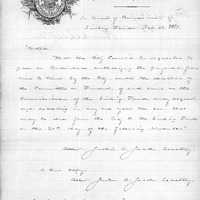 In Board of Commissioners of
Sinking Fund. Feb. 23. 1887.
Resolved
That the City Council be requested to
pass an Ordinance authorizing the payment from
time to time by the City, under the direction of
the Committee on Finance, of such sums as the
Commissioners of the Sinking Fund may request
not exceeding in any one year the sum that
may be due from the City to the Sinking Fund
on the 30th day of the following November.
Attest
Secretary
A true copy.
Attest
Secretary